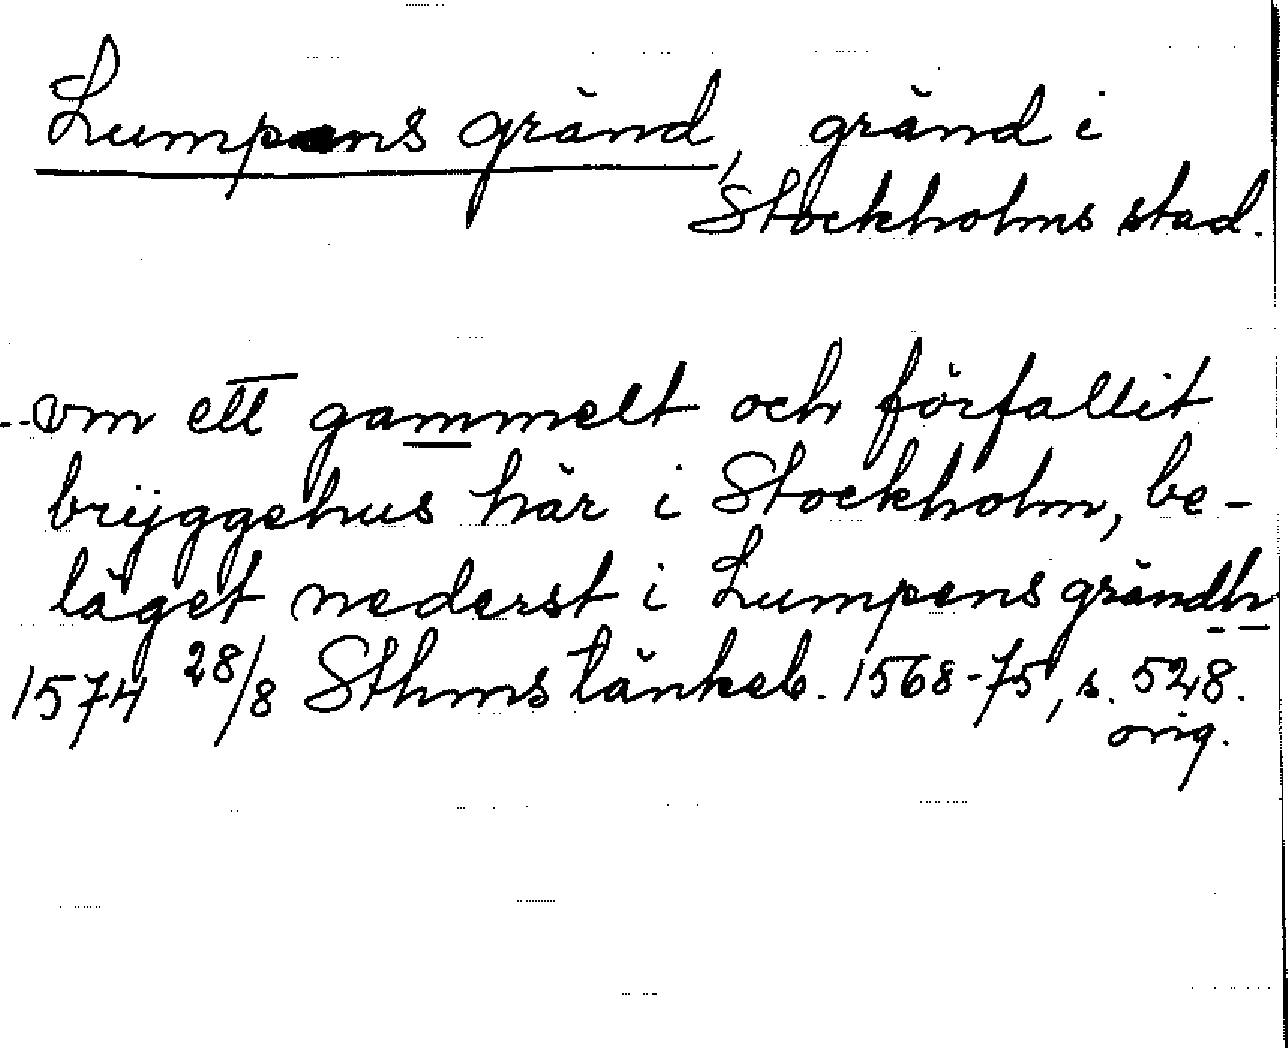 Lumpens gränd, gränd i
Stockholms stad.
--om ett gammelt och förfallit
bryggehus här i Stockholm, be-
läget nederst i Lumpens grändh
1574 28/8 Sthms tänkeb. 1568-75, s. 528.
orig.